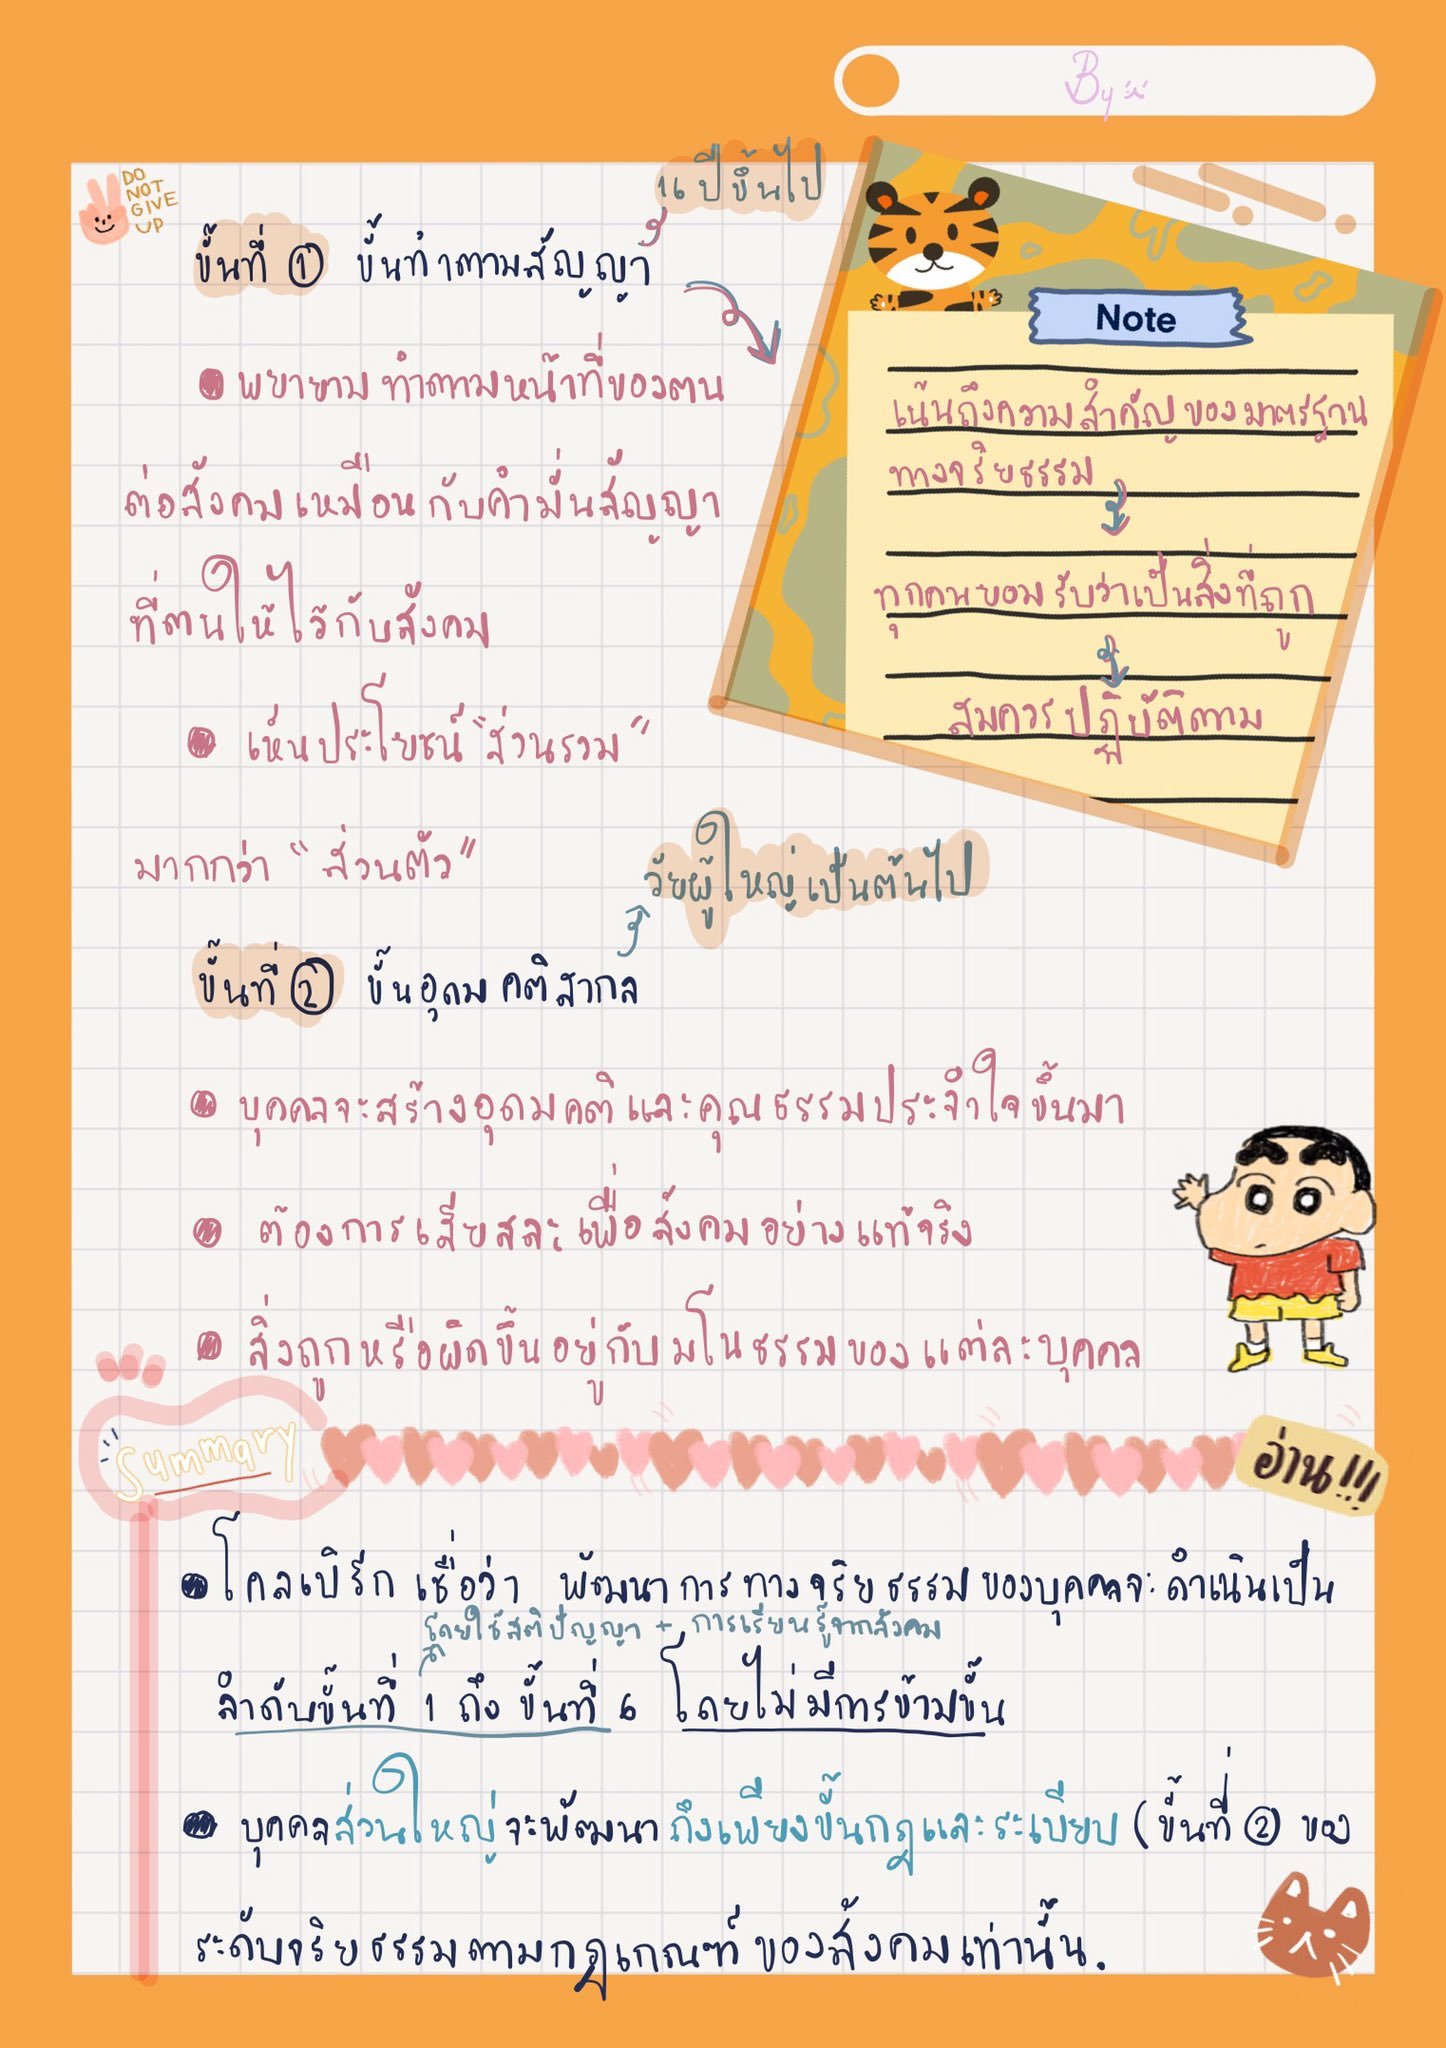 By
DO
NOT
GIVE
UP
16 ปีขึ้นไป
ขั้นที่ ① ขั้นทำตามสัญญา
• พยายามทำตามหน้าที่ของตน
ต่อสังคมเหมือนกับคำมั่นสัญญา
ที่ตนให้ไว้กับสังคม
• เห็นประโยชน์ "ส่วนรวม"
มากกว่า "ส่วนตัว"
Note
เน้นถึงความสำคัญของมาตรฐาน
ทางจริยธรรม
ทุกคนยอมรับว่าเป็นสิ่งที่ถูก
สมควรปฏิบัติตาม
วัยผู้ใหญ่เป็นต้นไป
ขั้นที่ ② ขั้นอุดมคติสากล
• บุคคลจะสร้างอุดมคติและคุณธรรมประจำใจขึ้นมา
• ต้องการเสียสละเพื่อสังคมอย่างแท้จริง
• สิ่งถูกหรือผิดขึ้นอยู่กับมโนธรรมของแต่ละบุคคล
Summary
อ่าน!!!
• โคลเบิร์ก เชื่อว่า พัฒนาการทางจริยธรรมของบุคคลจะดำเนินเป็น
โดยใช้สติปัญญา + การเรียนรู้จากสังคม
ลำดับขั้นที่ 1 ถึง ขั้นที่ 6 โดยไม่มีการข้ามขั้น
• บุคคลส่วนใหญ่จะพัฒนาถึงเพียงขั้นกฎและระเบียบ (ขั้นที่ ② ของ
ระดับจริยธรรมตามกฎเกณฑ์ของสังคมเท่านั้น.